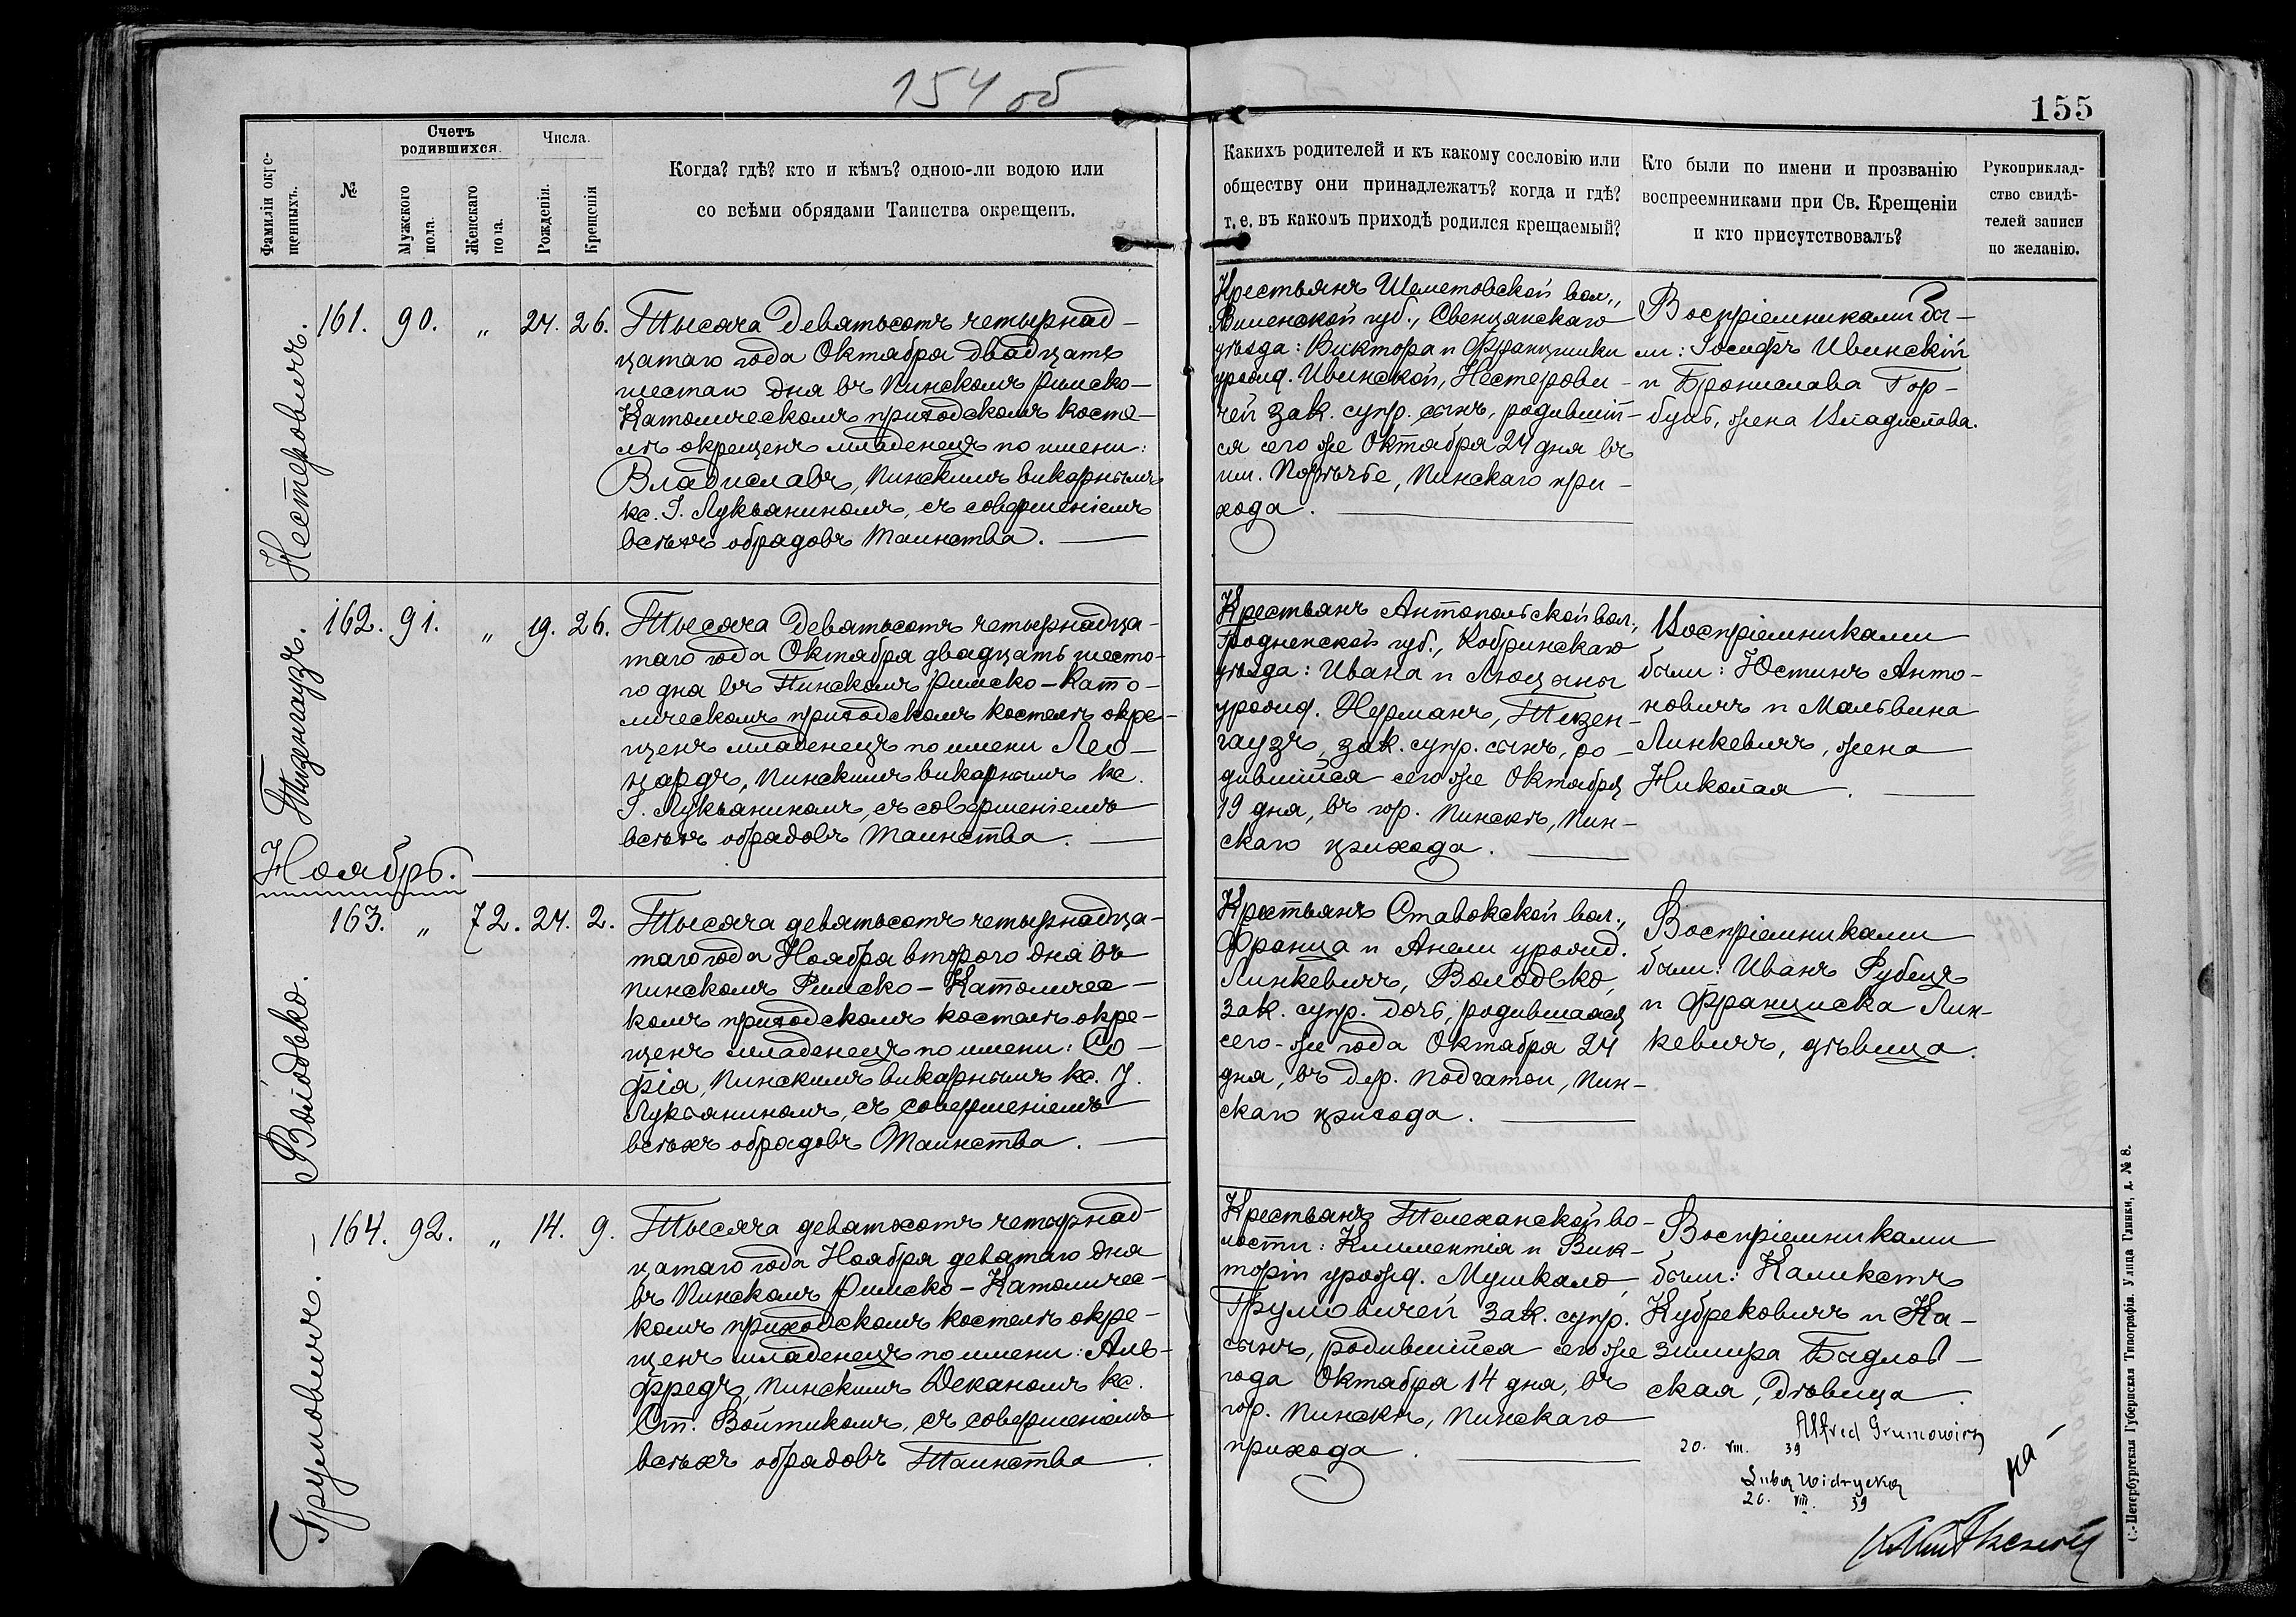 154 об
155
Фамиліи окре-
щенныхъ.
№
Счетъ
родившихся.
Мужскаго
пола.
Женскаго
пола.
Числа.
Рожденія.
Крещенія
Когда? гдѣ? кто и кѣмъ? одною-ли водою или
со всѣми обрядами Таинства окрещенъ.
Какихъ родителей и къ какому сословію или
обществу они принадлежатъ? когда и гдѣ?
т. е. въ какомъ приходѣ родился крещаемый?
Кто были по имени и прозванію
воспреемниками при Св. Крещеніи
и кто присутствовалъ?
Рукоприклад-
ство свидѣ-
телей записи
по желанію.
Нестеровичъ.
161. 90. „ 24. 26.
Тысяча Девятьсотъ четырнад-
цатаго года Октября двадцать
шестаго дня въ Пинскомъ Римско-
Католическомъ приходскомъ косте-
лѣ окрещенъ младенецъ по имени:
Владиславъ, Пинскимъ викарнымъ
кс. І. Лукьяниномъ, съ совершеніемъ
всѣхъ обрядовъ Таинства.
Крестьянъ Шеметовской вол.,
Виленской губ., Свенцянскаго
уѣзда: Виктора и Францишки
урожд. Ивинской, Нестерови-
чей зак. супр. сынъ, родившій-
ся сего же Октября 24 дня въ
им. Порѣчье, Пинскаго при-
хода.
Воспріемниками бы-
ли: Іосифъ Ивинскій
и Бронислава Гор-
буль, жена Владислава.
Тизенгаузъ.
162. 91. „ 19. 26.
Тысяча Девятьсотъ четырнадца-
таго года Октября двадцать шесто-
го дня въ Пинскомъ Римско-Като-
лическомъ приходскомъ костелѣ окре-
щенъ младенецъ по имени Лео-
нардъ, Пинскимъ викарнымъ кс.
І. Лукьяниномъ, съ совершеніемъ
всѣхъ обрядовъ Таинства.
Крестьянъ Антопольской вол.,
Гродненской губ., Кобринскаго
уѣзда: Ивана и Люцыны
урожд. Нерманъ, Тизен-
гаузъ, зак. супр. сынъ, ро-
дившійся сего же Октября
19 дня, въ гор. Пинскѣ, Пин-
скаго прихода.
Воспріемниками
были: Юстинъ Анто-
новичъ и Мальвина
Линкевичъ, жена
Николая.
Ноябрь.
Володько.
163. „ 72. 24. 2.
Тысяча девятьсотъ четырнадца-
таго года Ноября второго дня въ
Пинскомъ Римско-Католичес-
комъ приходскомъ костелѣ окре-
щенъ младенецъ по имени: Со-
фія, Пинскимъ викарнымъ кс. І.
Лукьяниномъ, съ совершеніемъ
всѣхъ обрядовъ Таинства.
Крестьянъ Ставокской вол.,
Франца и Анели урожд.
Линкевичъ, Володько,
зак. супр. дочь, родившаяся
сего-же года Октября 24
дня, въ дер. Подгатьи, Пин-
скаго прихода.
Воспріемниками
были: Иванъ Рубецъ
и Франциска Лин-
кевичъ, дѣвица.
Грумовичъ.
164. 92. „ 14. 9.
Тысяча девятьсотъ четырнад-
цатаго года Ноября девятаго дня
въ Пинскомъ Римско-Католичес-
комъ приходскомъ костелѣ окре-
щенъ младенецъ по имени: Аль-
фредъ, Пинскимъ Деканомъ кс.
Ст. Войтикомъ, съ совершеніемъ
всѣхъ обрядовъ Таинства.
Крестьянъ Телеханской во-
лости: Климентія и Вик-
торіи урожд. Мушкало,
Грумовичей зак. супр.
сынъ, родившійся сего же
года Октября 14 дня, въ
гор. Пинскѣ, Пинскаго
прихода.
Воспріемниками
были: Каликстъ
Кубрековичъ и Ка-
зимира Быдлов-
ская, Дѣвица.
Alfred Grumowicz
20. VIII. 39
Luba Widrycka
20. VIII. 39
С.-Петербургская Губернская Типографія. Улица Глинки, д. № 8.